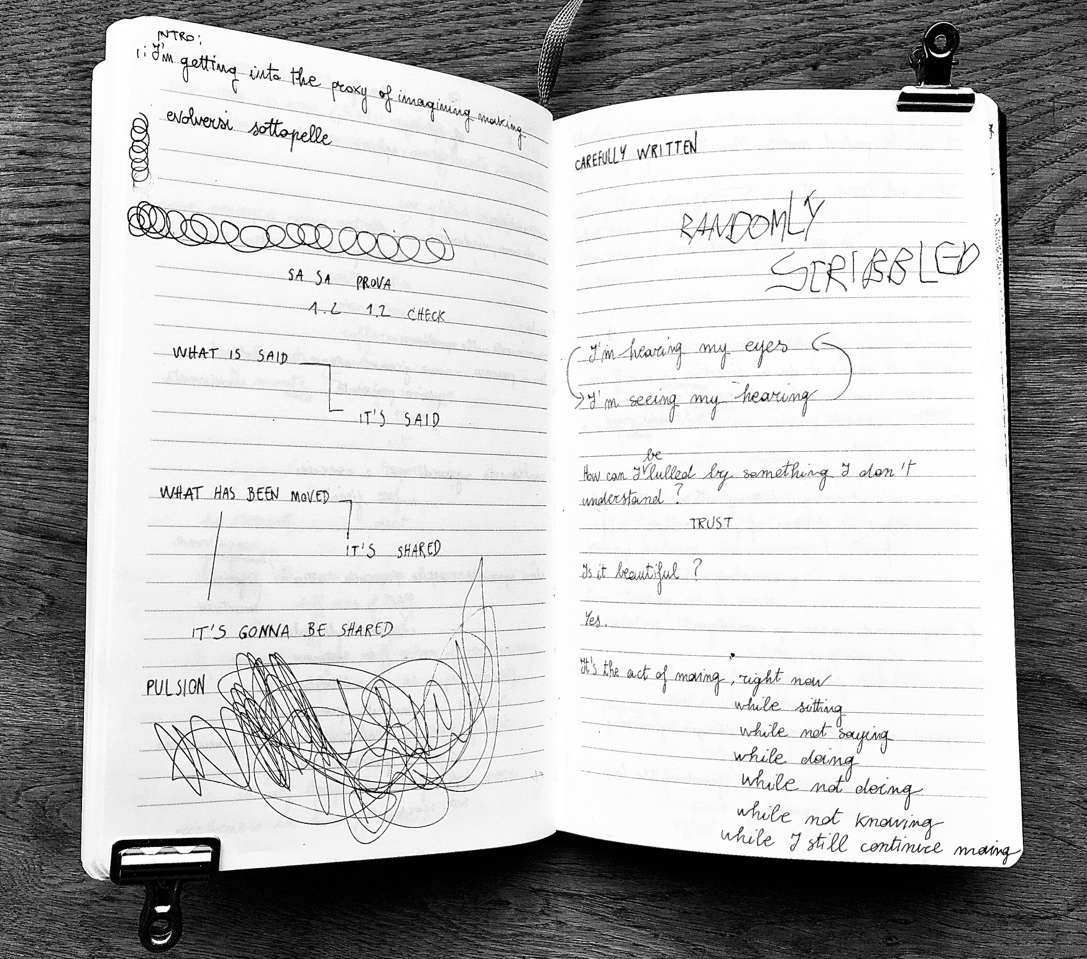 INTRO:
I'm getting into the proxy of imagining making
evolversi sottopelle
SA SA PROVA
1.2 1.2 CHECK
WHAT IS SAID
IT'S SAID
WHAT HAS BEEN MOVED
IT'S SHARED
IT'S GONNA BE SHARED
PULSION
CAREFULLY WRITTEN
RANDOMLY
SCRIBBLED
I'm hearing my eyes
I'm seeing my hearing
be
How can I lulled by something I don't
understand?
TRUST
Is it beautiful?
Yes.
It's the act of moving, right now
while sitting
while not saying
while doing
while not doing
while not knowing
while I still continue moving